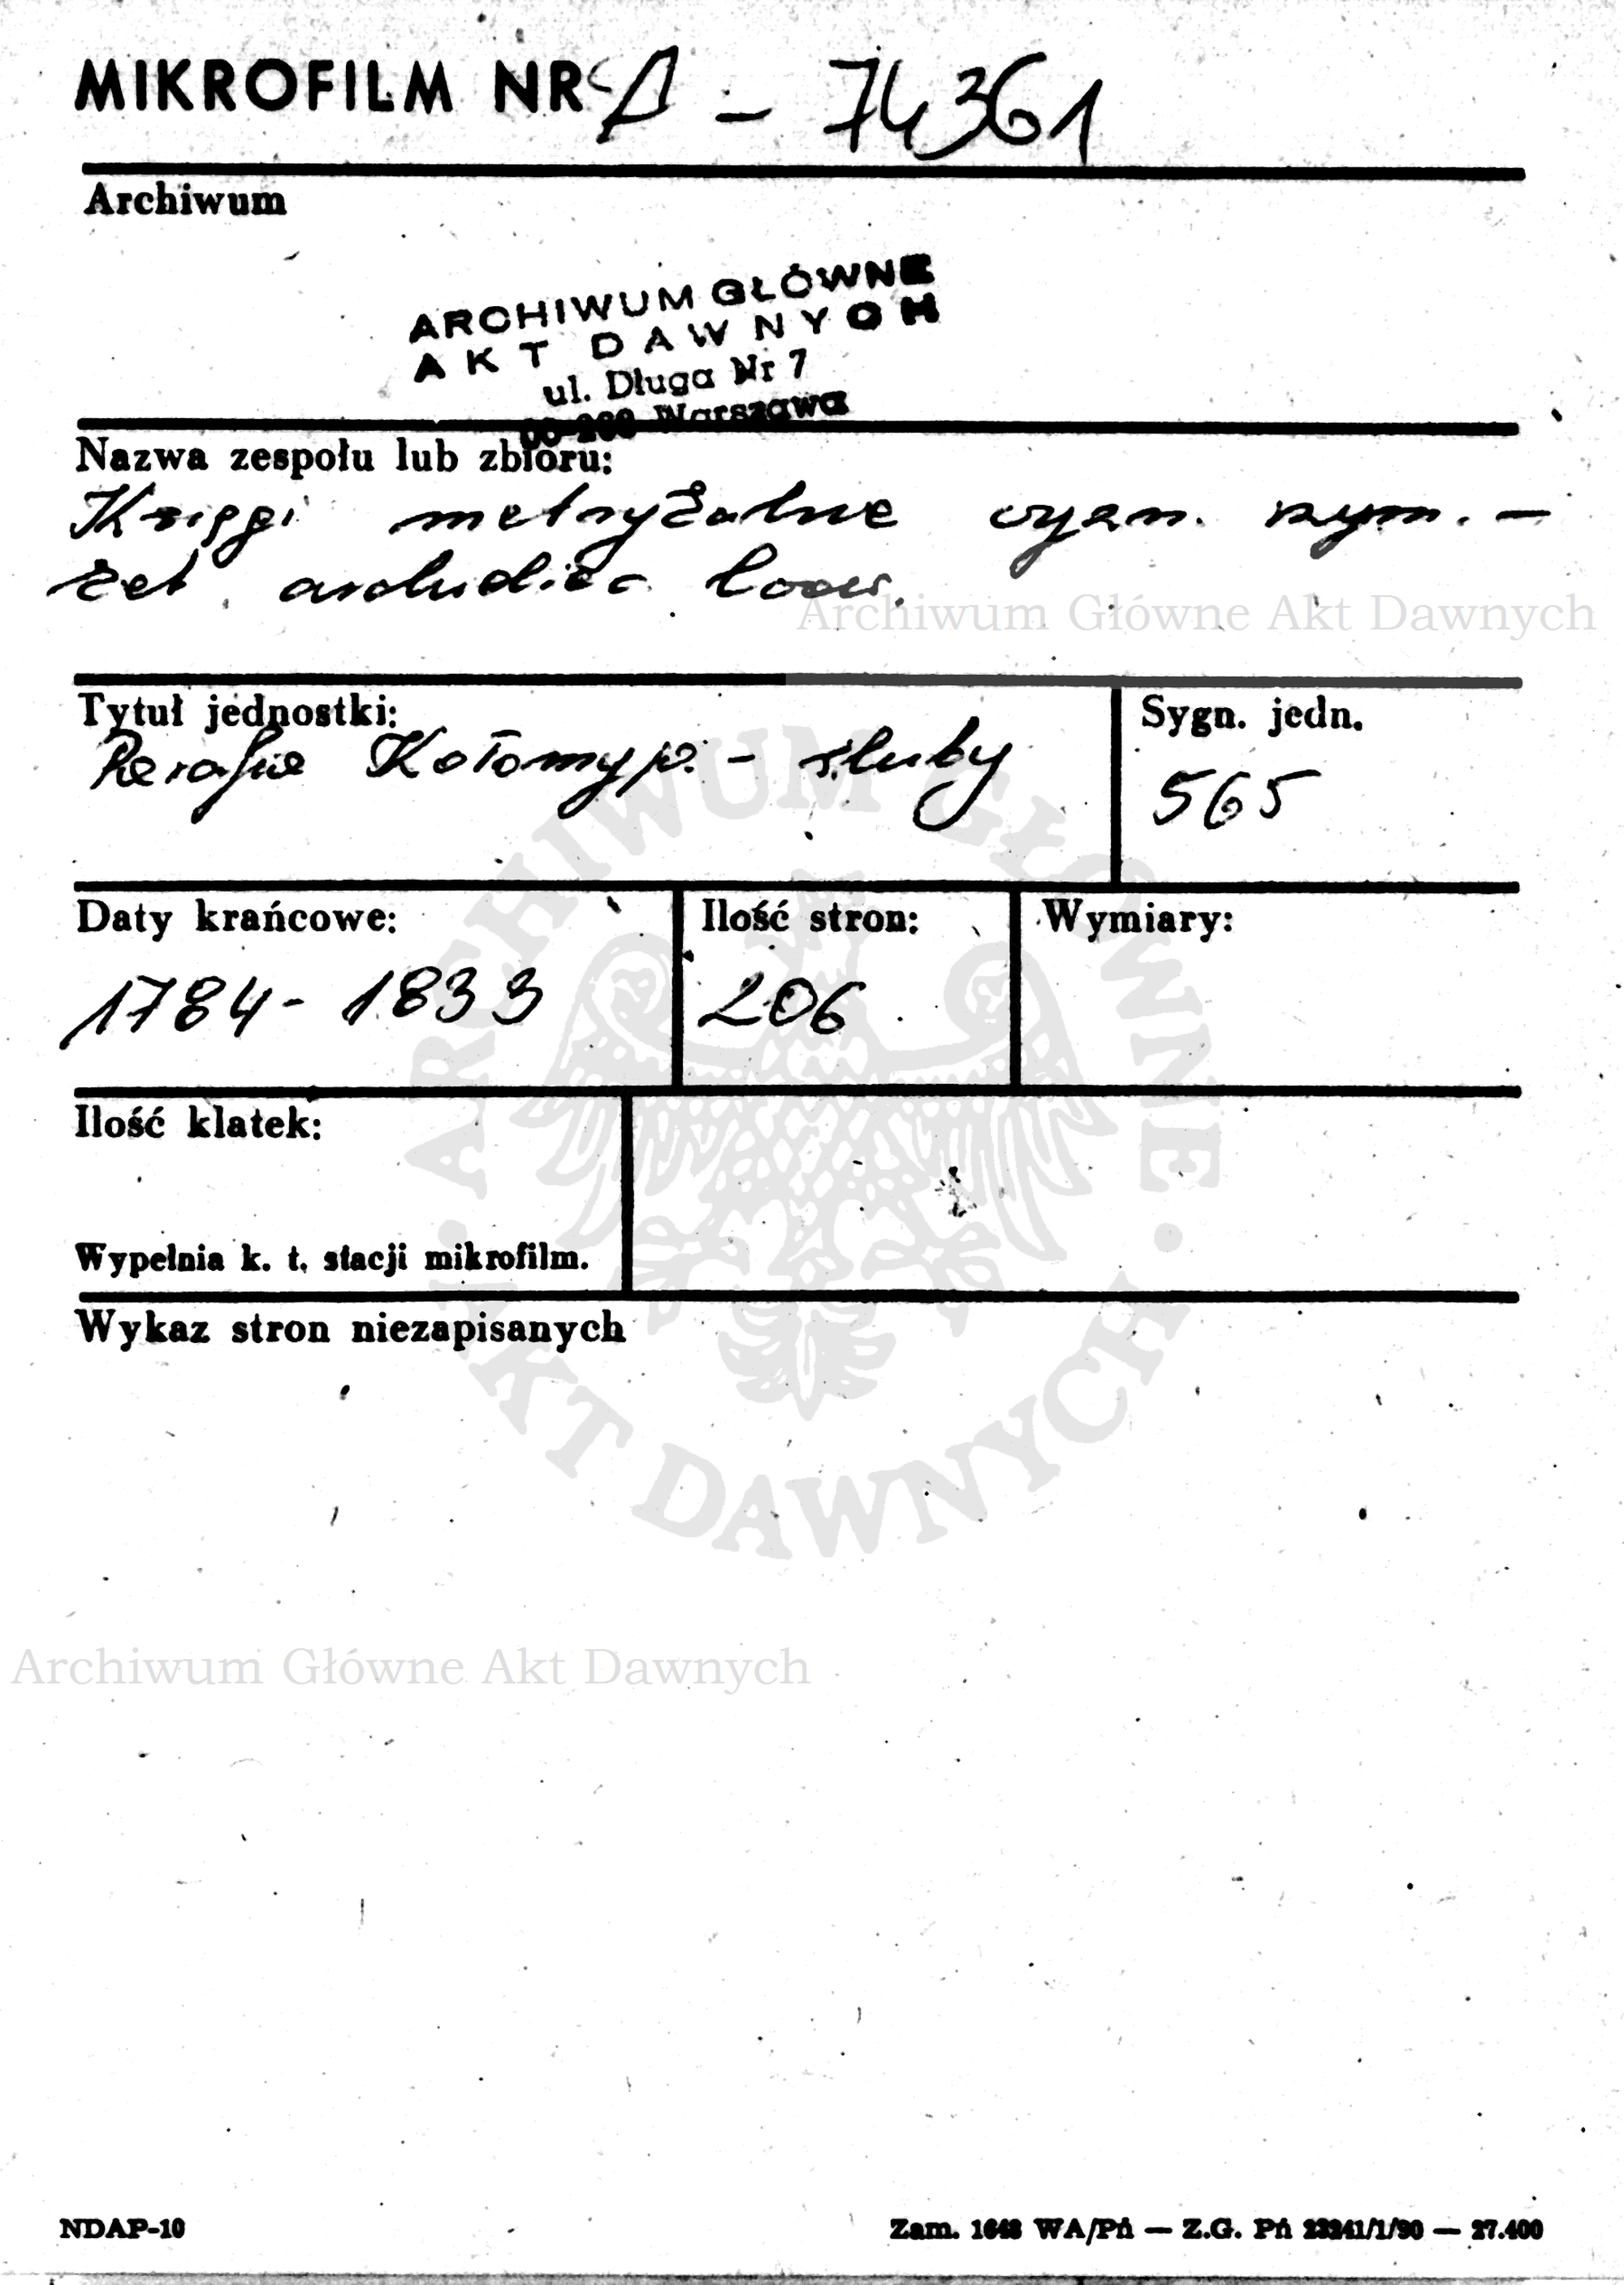 MIKROFILM NR A - 74361
Archiwum
ARCHIWUM GŁÓWNE
AKT DAWNYCH
ul. Długa Nr 7
00-263 Warszawa
Nazwa zespołu lub zbioru:
Księgi metrykalne wyzn. rzym. -
kat. archidiec. lwow.
Archiwum Główne Akt Dawnych
Tytuł jednostki:
Parafia Kołomyja - śluby
Sygn. jedn.
565
Daty krańcowe:
1784 - 1833
Ilość stron:
206
Wymiary:
Ilość klatek:
Wypełnia k. t. stacji mikrofilm.
Wykaz stron niezapisanych
ARCHIWUM GŁÓWNE
AKT DAWNYCH
Archiwum Główne Akt Dawnych
NDAP-10
Zam. 1648 WA/Pń — Z.G. Pń 23241/1/90 — 27.400